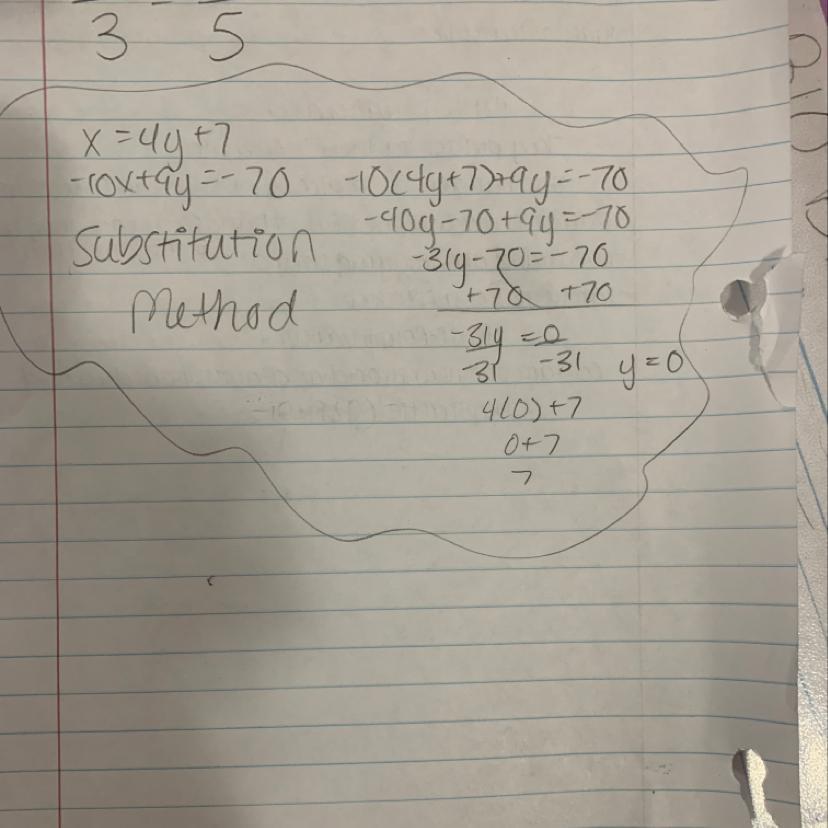 3 - 5
x = 4y + 7
-10x + 9y = -70
Substitution
Method
-10(4y+7)+9y=-70
-40y-70+9y=-70
-31y-70=-70
+70 +70
-31y = 0
-31 -31 y=0
4(0)+7
0+7
7